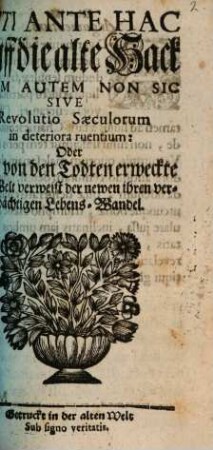 2
ANTE HAC
die alte Hack
AUTEM NON SIC
SIVE
Revolutio Sæculorum
in deteriora ruentium:
Oder
von den Todten erweckte
Welt verweist der newen ihren ver-
dächtigen Lebens-Wandel.
Getruckt in der alten Welt
Sub signo veritatis.